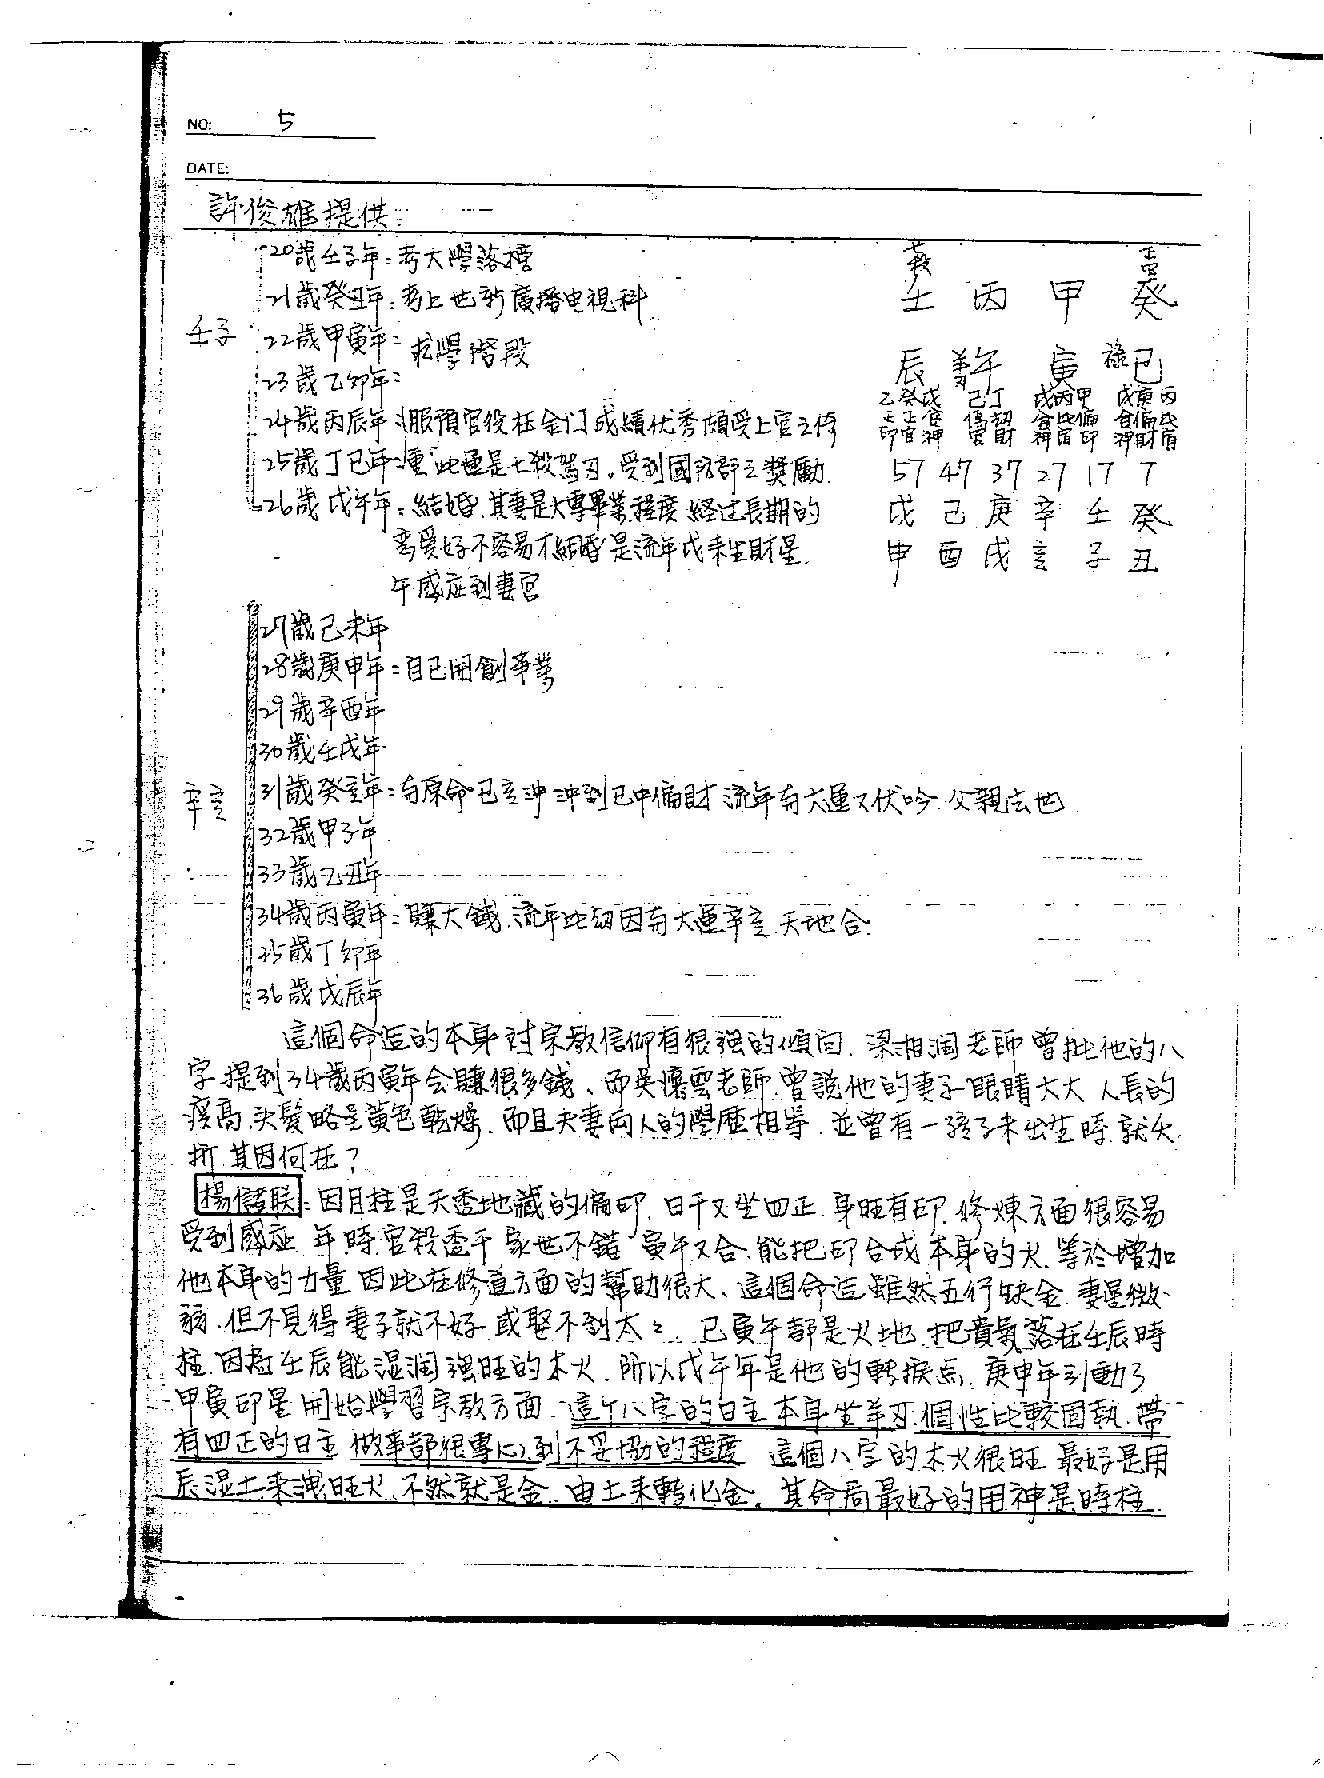 NO: 5
DATE:
許俊雄提供:
20歲壬子年:考大學落榜
21歲癸丑年:考上世新廣播电視科
壬子
22歲甲寅年:
在學階段
23歲乙卯年:
24歲丙辰年:服預官役在金门成績优秀頗受上官之倚
25歲丁巳年:重 此運是七殺驾刃。受到國防部之奬勵.
26歲戊午年:結婚.其妻是大專畢業程度 経过長期的
恋愛好不容易才結婚 是流年戊來生財星.
午感应到妻宮
七殺 正官
壬 丙 甲 癸
辰 羊刃午 寅 祿巳
乙癸戊 己丁 戊丙甲 戊庚丙
正正食 傷劫 食比偏 食偏比
印官神 官財 神肩印 神財肩
57 47 37 27 17 7
戊 己 庚 辛 壬 癸
申 酉 戌 亥 子 丑
27歲己未年
28歲庚申年:自己開創事業
29歲辛酉年
30歲壬戌年
辛亥
31歲癸亥年:与原命巳亥冲 冲到巳中偏財 流年与大運又伏吟.父親去世
32歲甲子年
33歲乙丑年
34歲丙寅年:賺大錢.流年比劫因与大運辛亥 天地合.
35歲丁卯年
36歲戊辰年
這個命造的本身对宗教信仰有很强的傾向.梁湘润老師曾批他的八
字提到34歲丙寅年会賺很多錢、而吳懷雲老師.曾説他的妻子眼睛大大 人長的
瘦高.头髮略呈黃色乾燥.而且夫妻两人的學歷相等.並曾有一孩子未出生時.就夭
折.其因何在?
楊儲朕:因月柱是天透地藏的偏印.日干又坐四正.身旺有印.修煉方面很容易
受到感应 年時官殺透干 家世不錯 寅午又合.能把印合成本身的火.等於增加
他本身的力量 因此在修道方面的幫助很大、這個命造雖然五行缺金 妻星微
弱.但不見得妻子就不好.或娶不到太太. 巳寅午都是火地.把貴氣落在壬辰時
柱.因為壬辰能湿润强旺的木火.所以戊午年是他的轉捩点.庚申年引動了
甲寅印星 開始學習宗教方面.這个八字的日主本身坐羊刃.個性比較固執.帶
有四正的日主 做事都很專心到不妥協的程度 這個八字的木火很旺 最好是用
辰湿土來洩旺火.不然就是金.由土來轉化金。其命局最好的用神是時柱.